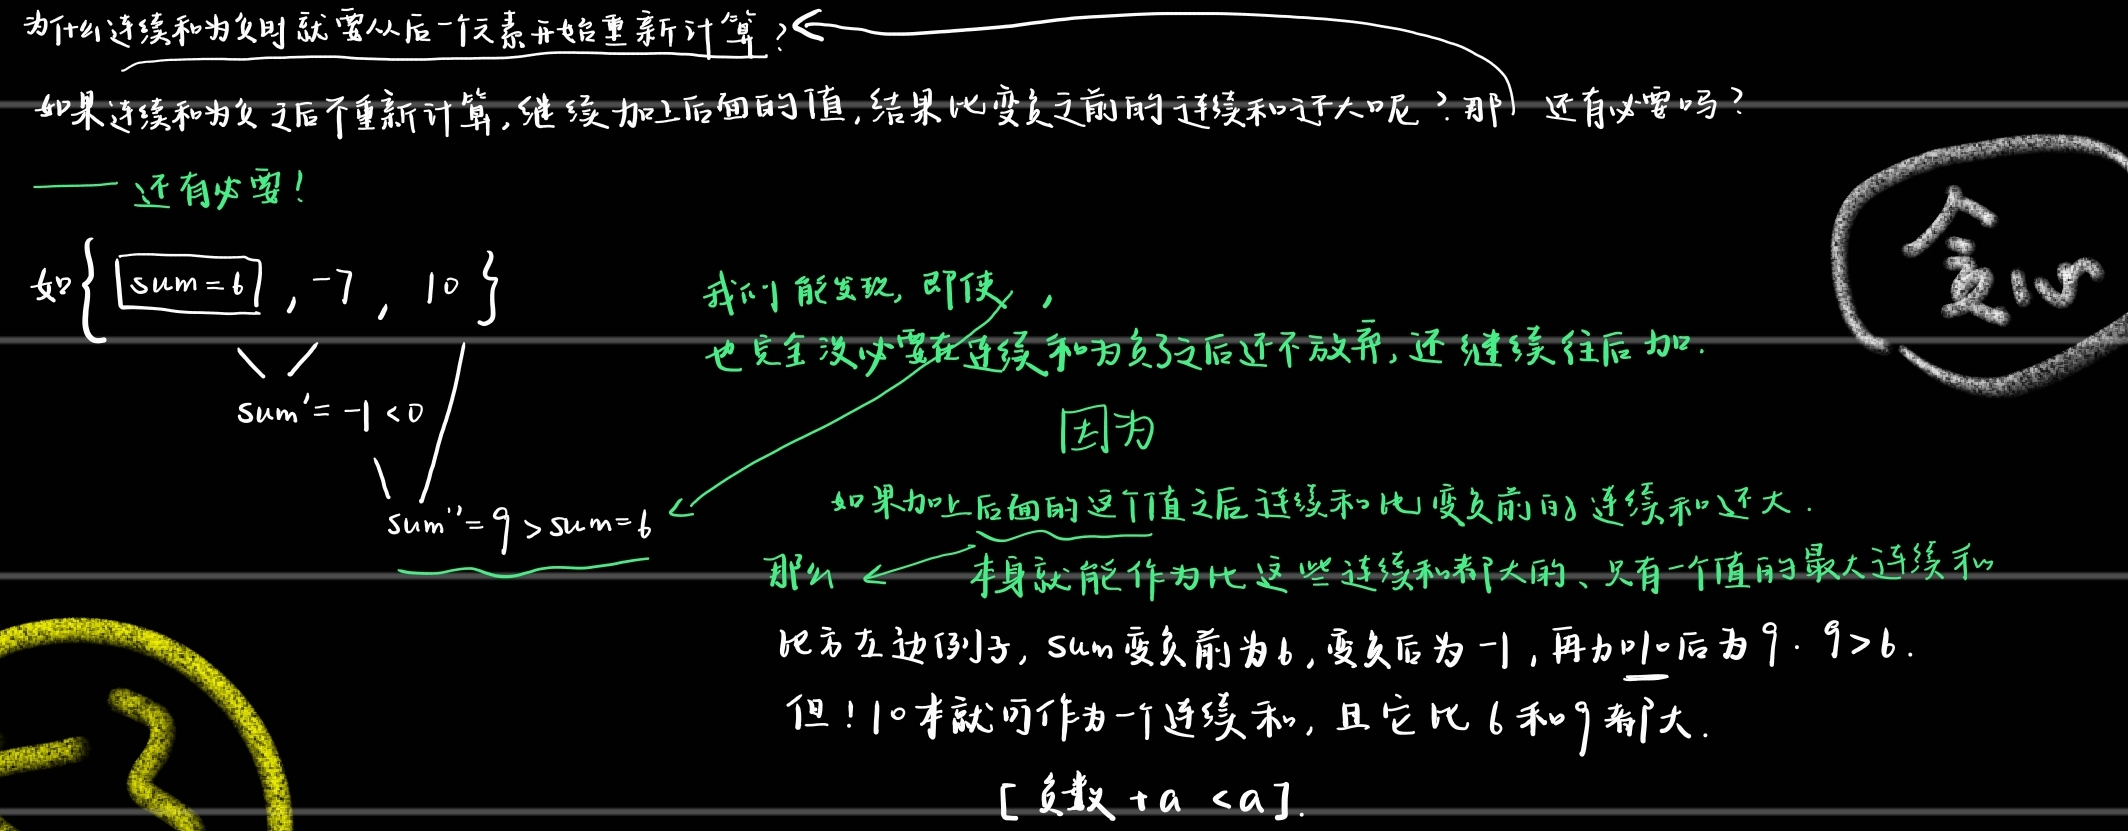 为什么连续和为负时就要从后一个元素开始重新计算？
如果连续和为负之后不重新计算，继续加上后面的值，结果比变负之前的连续和还大呢？那还有必要吗？
—— 还有必要！
贪心
如{ sum=6 , -7 , 10 }
sum'= -1 <0
sum''= 9 > sum=6
我们能发现，即使 ，
也完全没必要在连续和为负了之后还不放弃，还继续往后加.
因为
如果加上后面的这个值之后连续和比变负前的连续和还大.
那么 本身就能作为比这些连续和都大的、只有一个值的最大连续和
比方左边例子，sum变负前为6，变负后为-1，再加10后为9. 9>6.
但！10本就可作为一个连续和，且它比6和9都大.
[ 负数 +a <a ].